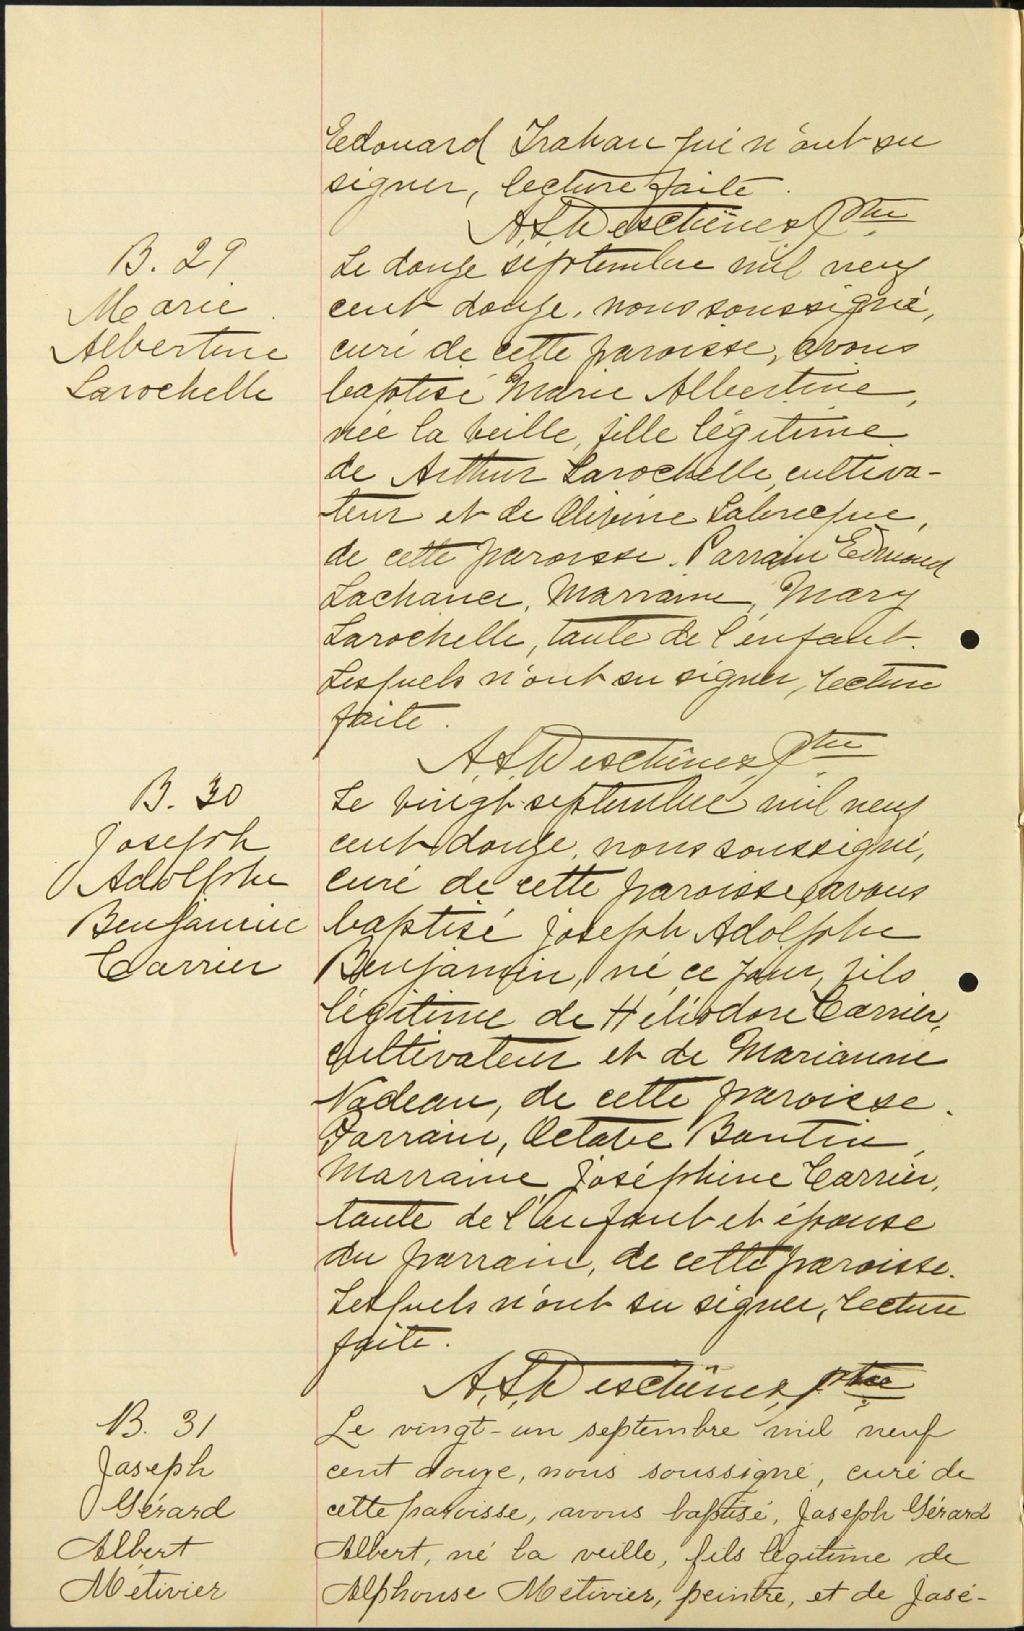 Edouard Trahan qui n'ont su
signer, lecture faite.
A.S. Deschênes, Ptre
B. 29
Marie
Albertine
Larochelle
Le douze septembre mil neuf
cent douze, nous soussigné,
curé de cette paroisse, avons
baptisé Marie Albertine,
née la veille, fille légitime
de Arthur Larochelle, cultiva-
teur et de Olivine Labrecque,
de cette paroisse. Parrain Edmond
Lachance, Marraine, Mary
Larochelle, tante de l'enfant.
Lesquels n'ont su signer, lecture
faite.
A.S. Deschênes, Ptre
B. 30
Joseph
Adolphe
Benjamin
Carrier
Le vingt septembre mil neuf
cent douze, nous soussigné,
curé de cette paroisse, avons
baptisé Joseph Adolphe
Benjamin, né ce jour, fils
légitime de Héliodore Carrier,
cultivateur et de Marianne
Nadeau, de cette paroisse.
Parrain, Octave Boutin,
Marraine Joséphine Carrier,
tante de l'enfant et épouse
du parrain, de cette paroisse.
Lesquels n'ont su signer, lecture
faite.
A.S. Deschênes, ptre
B. 31
Joseph
Gérard
Albert
Métivier
Le vingt-un septembre mil neuf
cent douze, nous soussigné, curé de
cette paroisse, avons baptisé, Joseph Gérard
Albert, né la veille, fils légitime de
Alphonse Métivier, peintre, et de José-